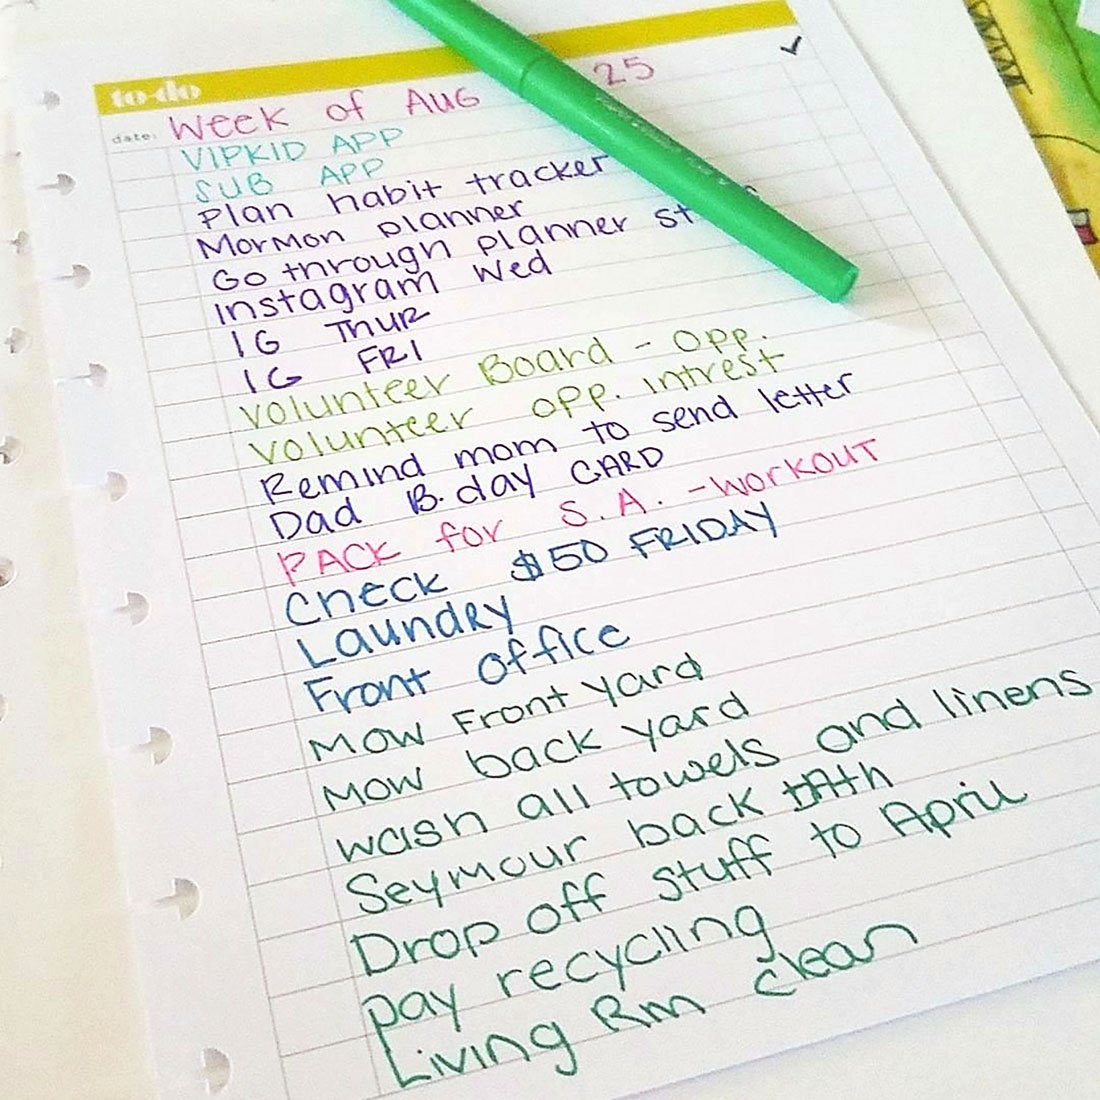 to-do
date: Week of Aug 25
VIPKID APP
SUB APP
Plan habit tracker
Mormon planner
Go through planner
Instagram Wed
IG THUR
IG FRI
Volunteer Board - Opp.
Volunteer opp. intrest
Remind mom to send letter
Dad B.day CARD
PACK for S.A. - workout
Check $50 FRIDAY
Laundry
Front Office
Mow Front yard
Mow back yard
wash all towels and linens
Seymour back
Drop off stuff to April
pay recycling
Living Rm clean